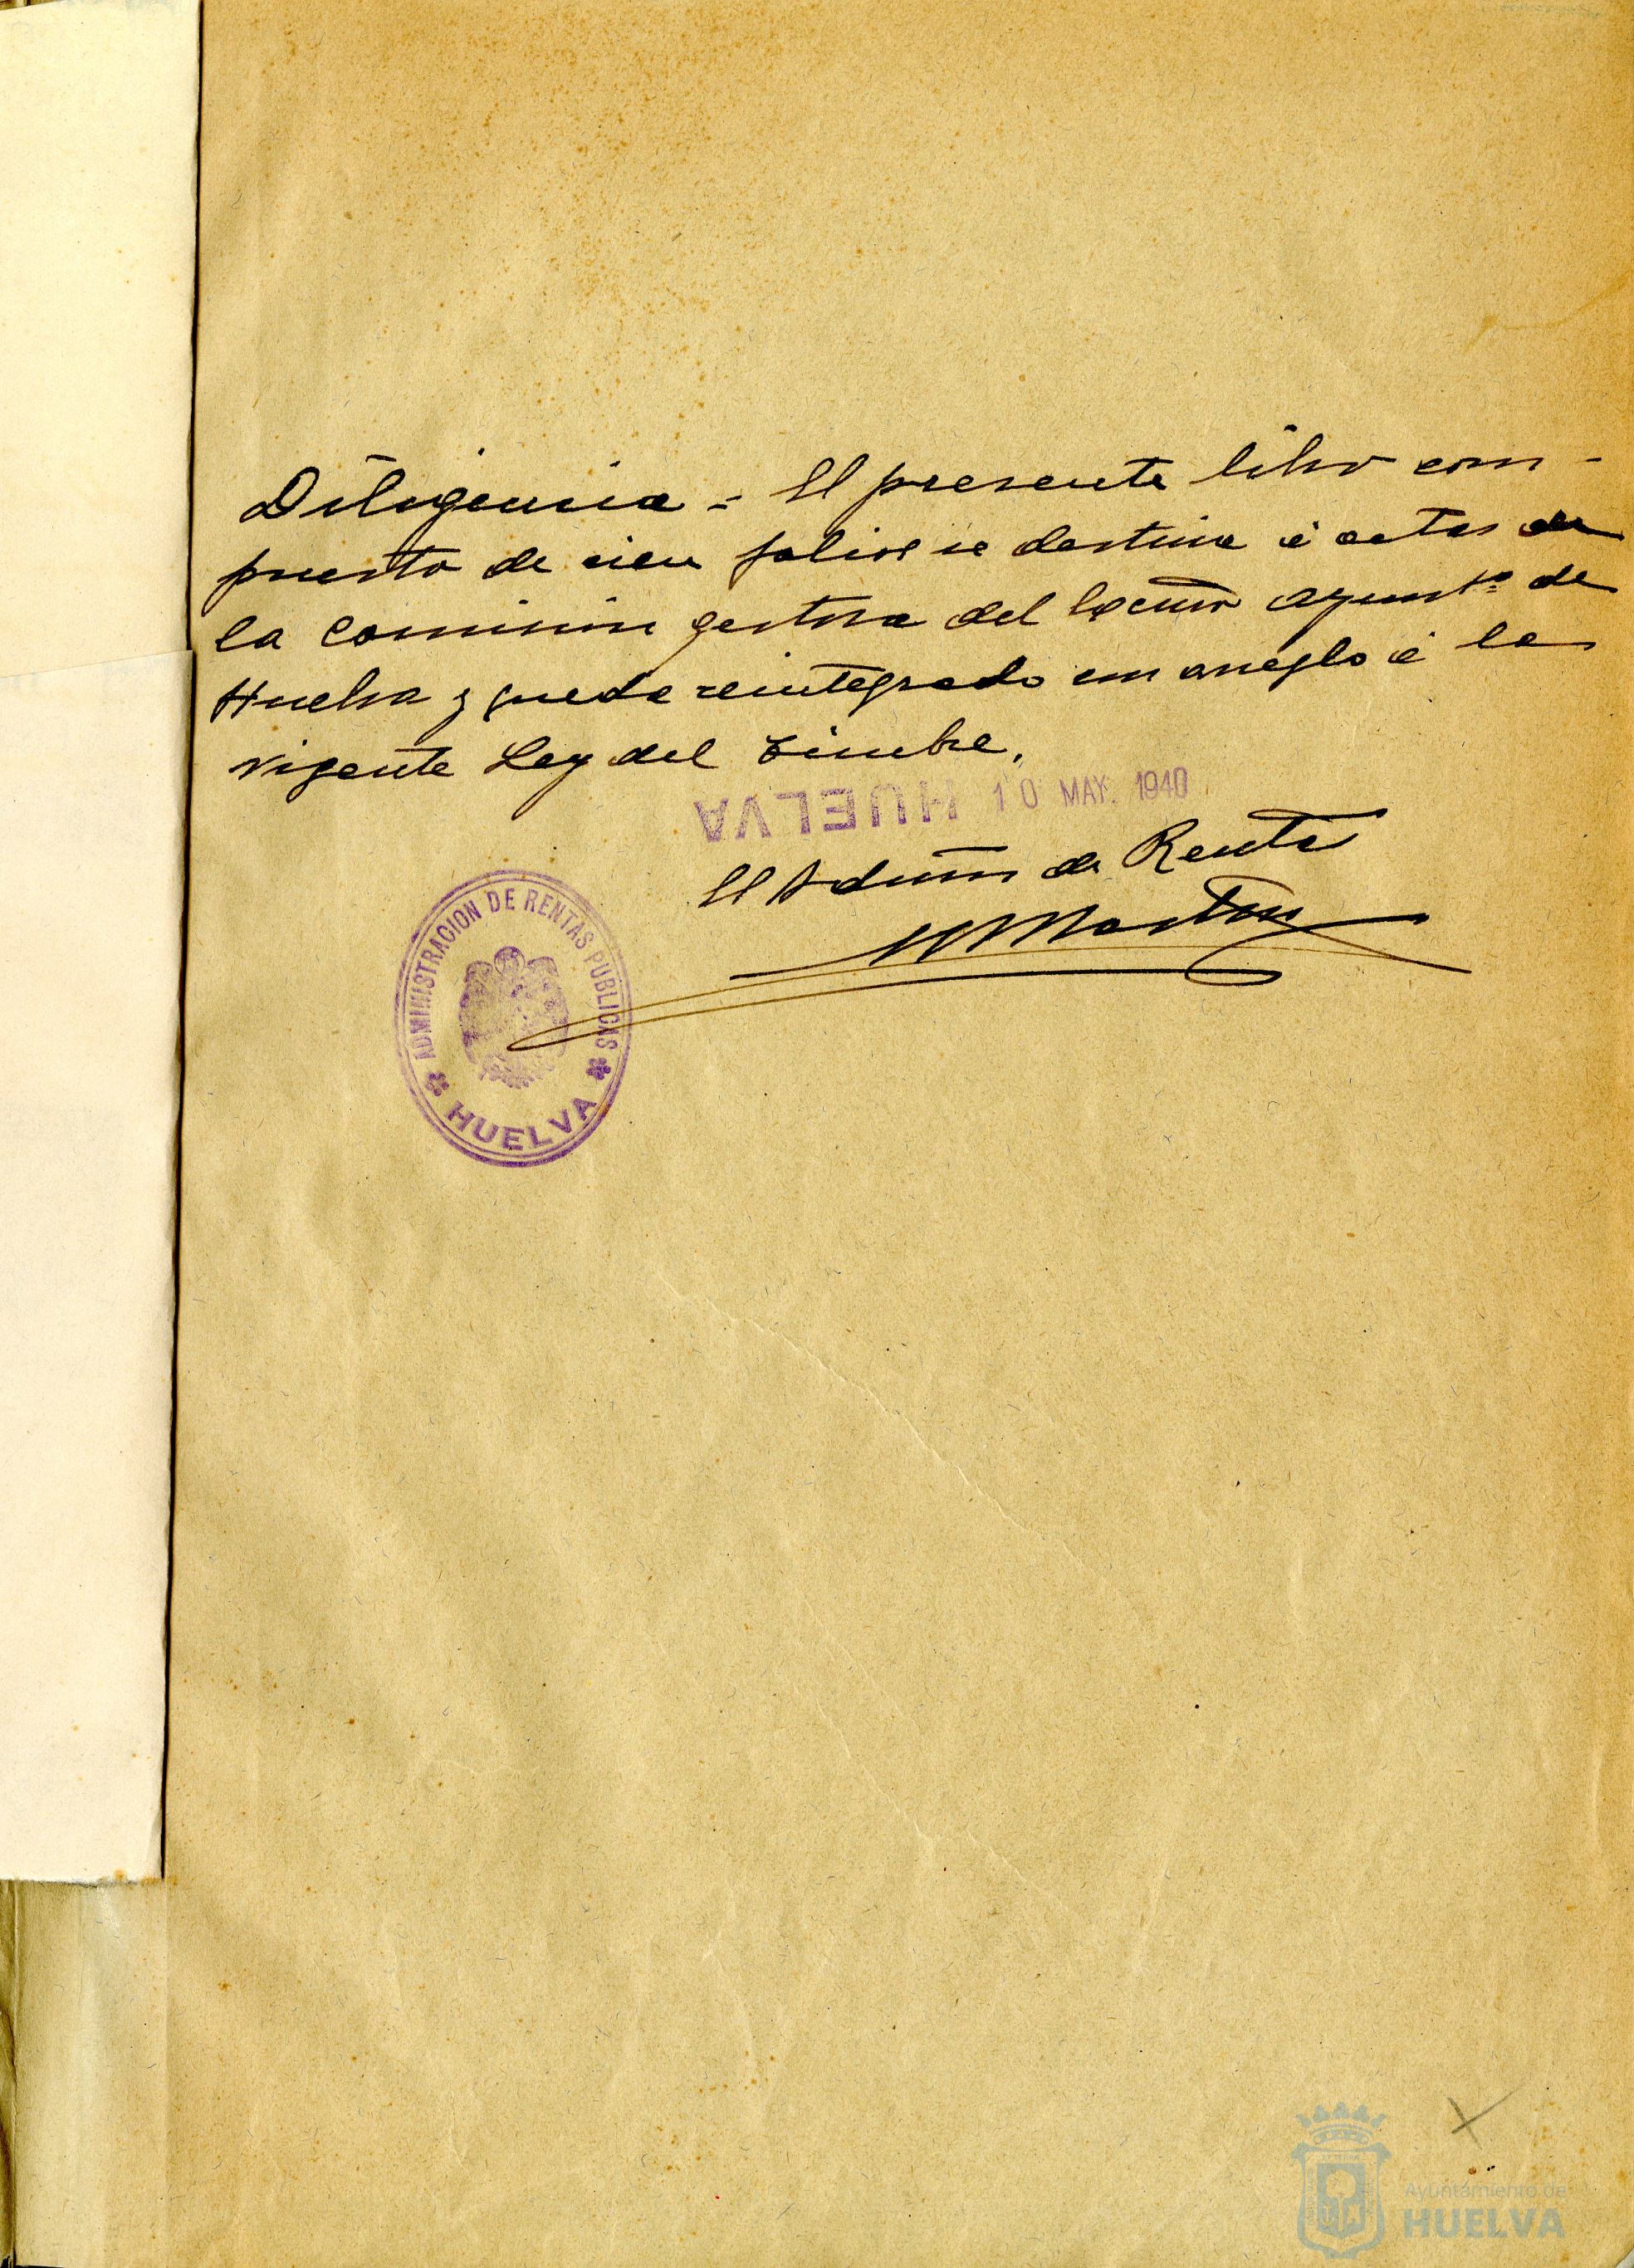 Diligencia = El presente libro com-
puesto de cien folios se destina á actas de
la Comision gestora del Excmo Ayunto de
Huelva y queda reintegrado con arreglo á la
vigente Ley del Timbre.
HUELVA 10 MAY. 1940
El Admin de Rentas
ADMINISTRACION DE RENTAS PUBLICAS
HUELVA
Ayuntamiento de
HUELVA